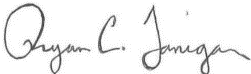 Ryan C. Tanigan